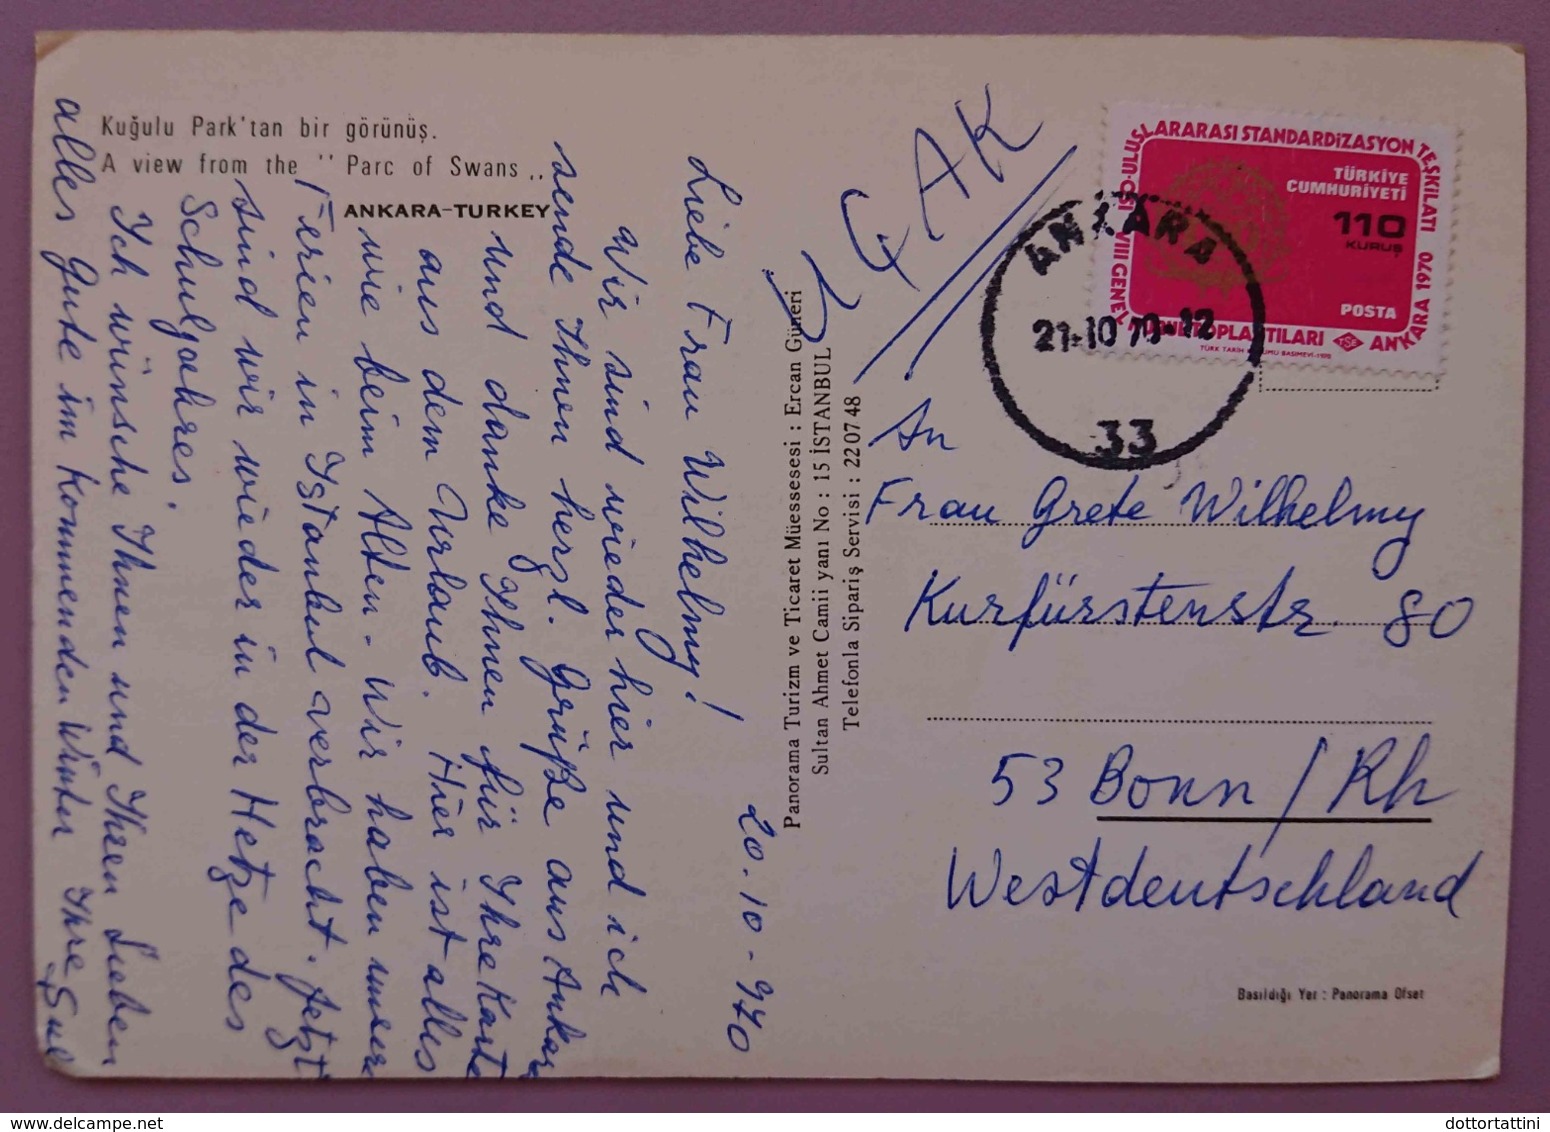 Kuğulu Park'tan bir görünüş.
A view from the '' Parc of Swans ,,
ANKARA-TURKEY
20.10.970
Liebe Frau Wilhelmy!
Wir sind wieder hier und ich
sende Ihnen herzl. Grüße aus Ankara
und danke Ihnen für Ihre Karte
aus dem Urlaub. Hier ist alles
wie beim Alten. Wir haben unsere
Ferien in Istanbul verbracht. Jetzt
sind wir wieder in der Hetze des
Schuljahres.
Ich wünsche Ihnen und Ihren Lieben
alles Gute im kommenden Winter Ihre
Panorama Turizm ve Ticaret Müessesesi : Ercan Güneri
Sultan Ahmet Camii yanı No : 15 İSTANBUL
Telefonla Sipariş Servisi : 22 07 48
UÇAK
ISO-ULUSLARARASI STANDARDİZASYON TEŞKİLATI
VIII GENEL
TOPLANTILARI
ANKARA 1970
TÜRKİYE
CUMHURİYETİ
110
KURUŞ
POSTA
TSE
ANKARA
21-10 70-12
33
An
Frau Grete Wilhelmy
Kurfürstenstr. 80
53 Bonn / Rh
Westdeutschland
Basıldığı Yer : Panorama Ofset
dottortattini